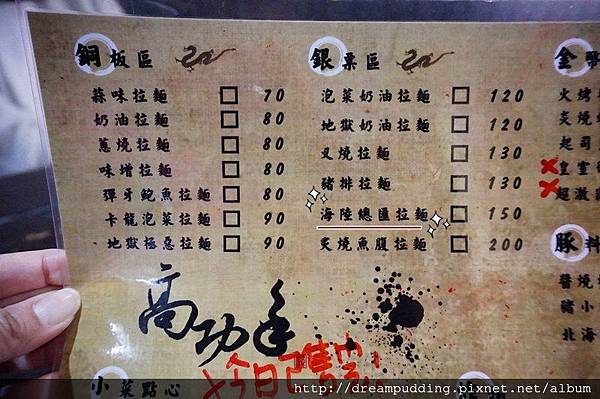 銅板區
蒜味拉麵 70
奶油拉麵 80
蔥燒拉麵 80
味增拉麵 80
彈牙鮑魚拉麵 80
卡龍泡菜拉麵 90
地獄極惡拉麵 90
銀票區
泡菜奶油拉麵 120
地獄奶油拉麵 120
叉燒拉麵 130
豬排拉麵 130
海陸總匯拉麵 150
炙燒魚腹拉麵 200
金幣
火烤
炙燒
起司
皇室
超激
豚料
醬燒
豬小
北海
高功
今日
小菜點心
http://dreampudding.pixnet.net/album